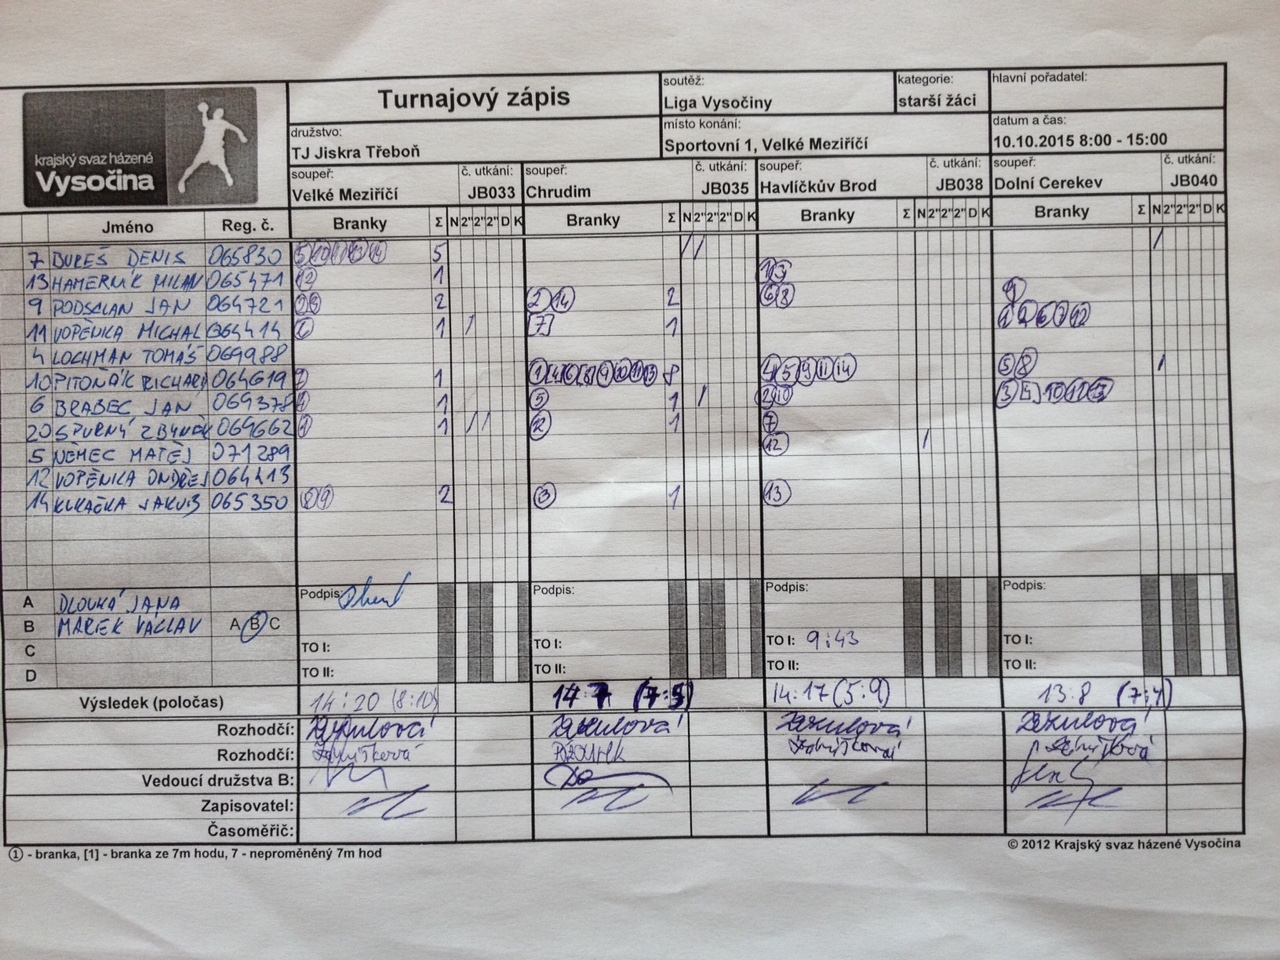 krajský svaz házené
Vysočina
Turnajový zápis
soutěž:
Liga Vysočiny
kategorie:
starší žáci
hlavní pořadatel:
družstvo:
TJ Jiskra Třeboň
místo konání:
Sportovní 1, Velké Meziříčí
datum a čas:
10.10.2015 8:00 - 15:00
soupeř: č. utkání: soupeř: č. utkání: soupeř: č. utkání: soupeř: č. utkání:
Velké Meziříčí JB033 Chrudim JB035 Havlíčkův Brod JB038 Dolní Cerekev JB040
Jméno Reg. č. Branky Σ N 2" 2" 2" D K Branky Σ N 2" 2" 2" D K Branky Σ N 2" 2" 2" D K Branky Σ N 2" 2" 2" D K
7 BUREŠ DENIS 065830 5
13 HAMERNÍK MILAN 065471 12 1 13
9 PODSCLAN JAN 064721 2 2 14 2 6 8 9
11 VOPĚNKA MICHAL 064414 1 [7] 1
4 LOCHMAN TOMÁŠ 069988
10 PITOŇÁK RICHARD 064619 7 1 8 4 5 9 11 14 5 8
6 BRABEC JAN 069378 1 5 1
20 SPURNÝ ZBYNĚK 069662 1 12 1 7
5 NĚMEC MATĚJ 071289 12
12 VOPĚNKA ONDŘEJ 064413
14 KUKAČKA JAKUB 065350 2 3 1 13
Podpis: Podpis: Podpis: Podpis:
A DLOUHÁ JANA
B MAREK VÁCLAV A B C
C TO I: TO I: TO I: 9:43 TO I:
D TO II: TO II: TO II: TO II:
Výsledek (poločas) 14:20 (8:10) 14:7 (7:5) 14:17 (5:9) 13:8 (7:4)
Rozhodčí:
Rozhodčí:
Vedoucí družstva B:
Zapisovatel:
Časoměřič:
① - branka, [1] - branka ze 7m hodu, 7 - neproměněný 7m hod
© 2012 Krajský svaz házené Vysočina